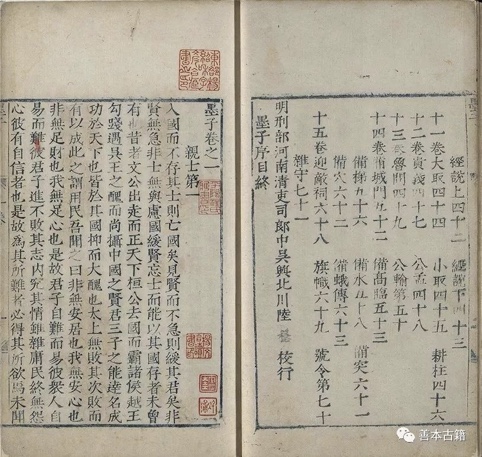 經說上四十二　經說下四十三
十一卷大取四十四　小取四十五　耕柱四十六
十二卷貴義四十七　公孟四十八
十三卷魯問四十九　公輸第五十
十四卷備城門五十二　備高臨五十三
備梯五十六　備水五十八　備突六十一
備穴六十二　備蛾傅六十三
十五卷迎敵祠六十八　旗幟六十九　號令第七十
雜守七十一
明刑部河南清吏司郎中吳興北川陸　校行
墨子序目終
墨子卷之一
親士第一
入國而不存其士則亡國矣見賢而不急則緩其君矣非
賢無急非士無與慮國緩賢忘士而能以其國存者未曾
有也昔者文公出走而正天下桓公去國而霸諸侯越王
勾踐遇吳王之醜而尚攝中國之賢君三子之能達名成
功於天下也皆於其國抑而大醜也太上無敗其次敗而
有以成此之謂用民吾聞之曰非無安居也我無安心也
非無足財也我無足心也是故君子自難而易彼衆人自
易而難彼君子進不敗其志內究其情雖雜庸民終無怨
心彼有自信者也是故為其所難者必得其所欲焉未聞
善本古籍